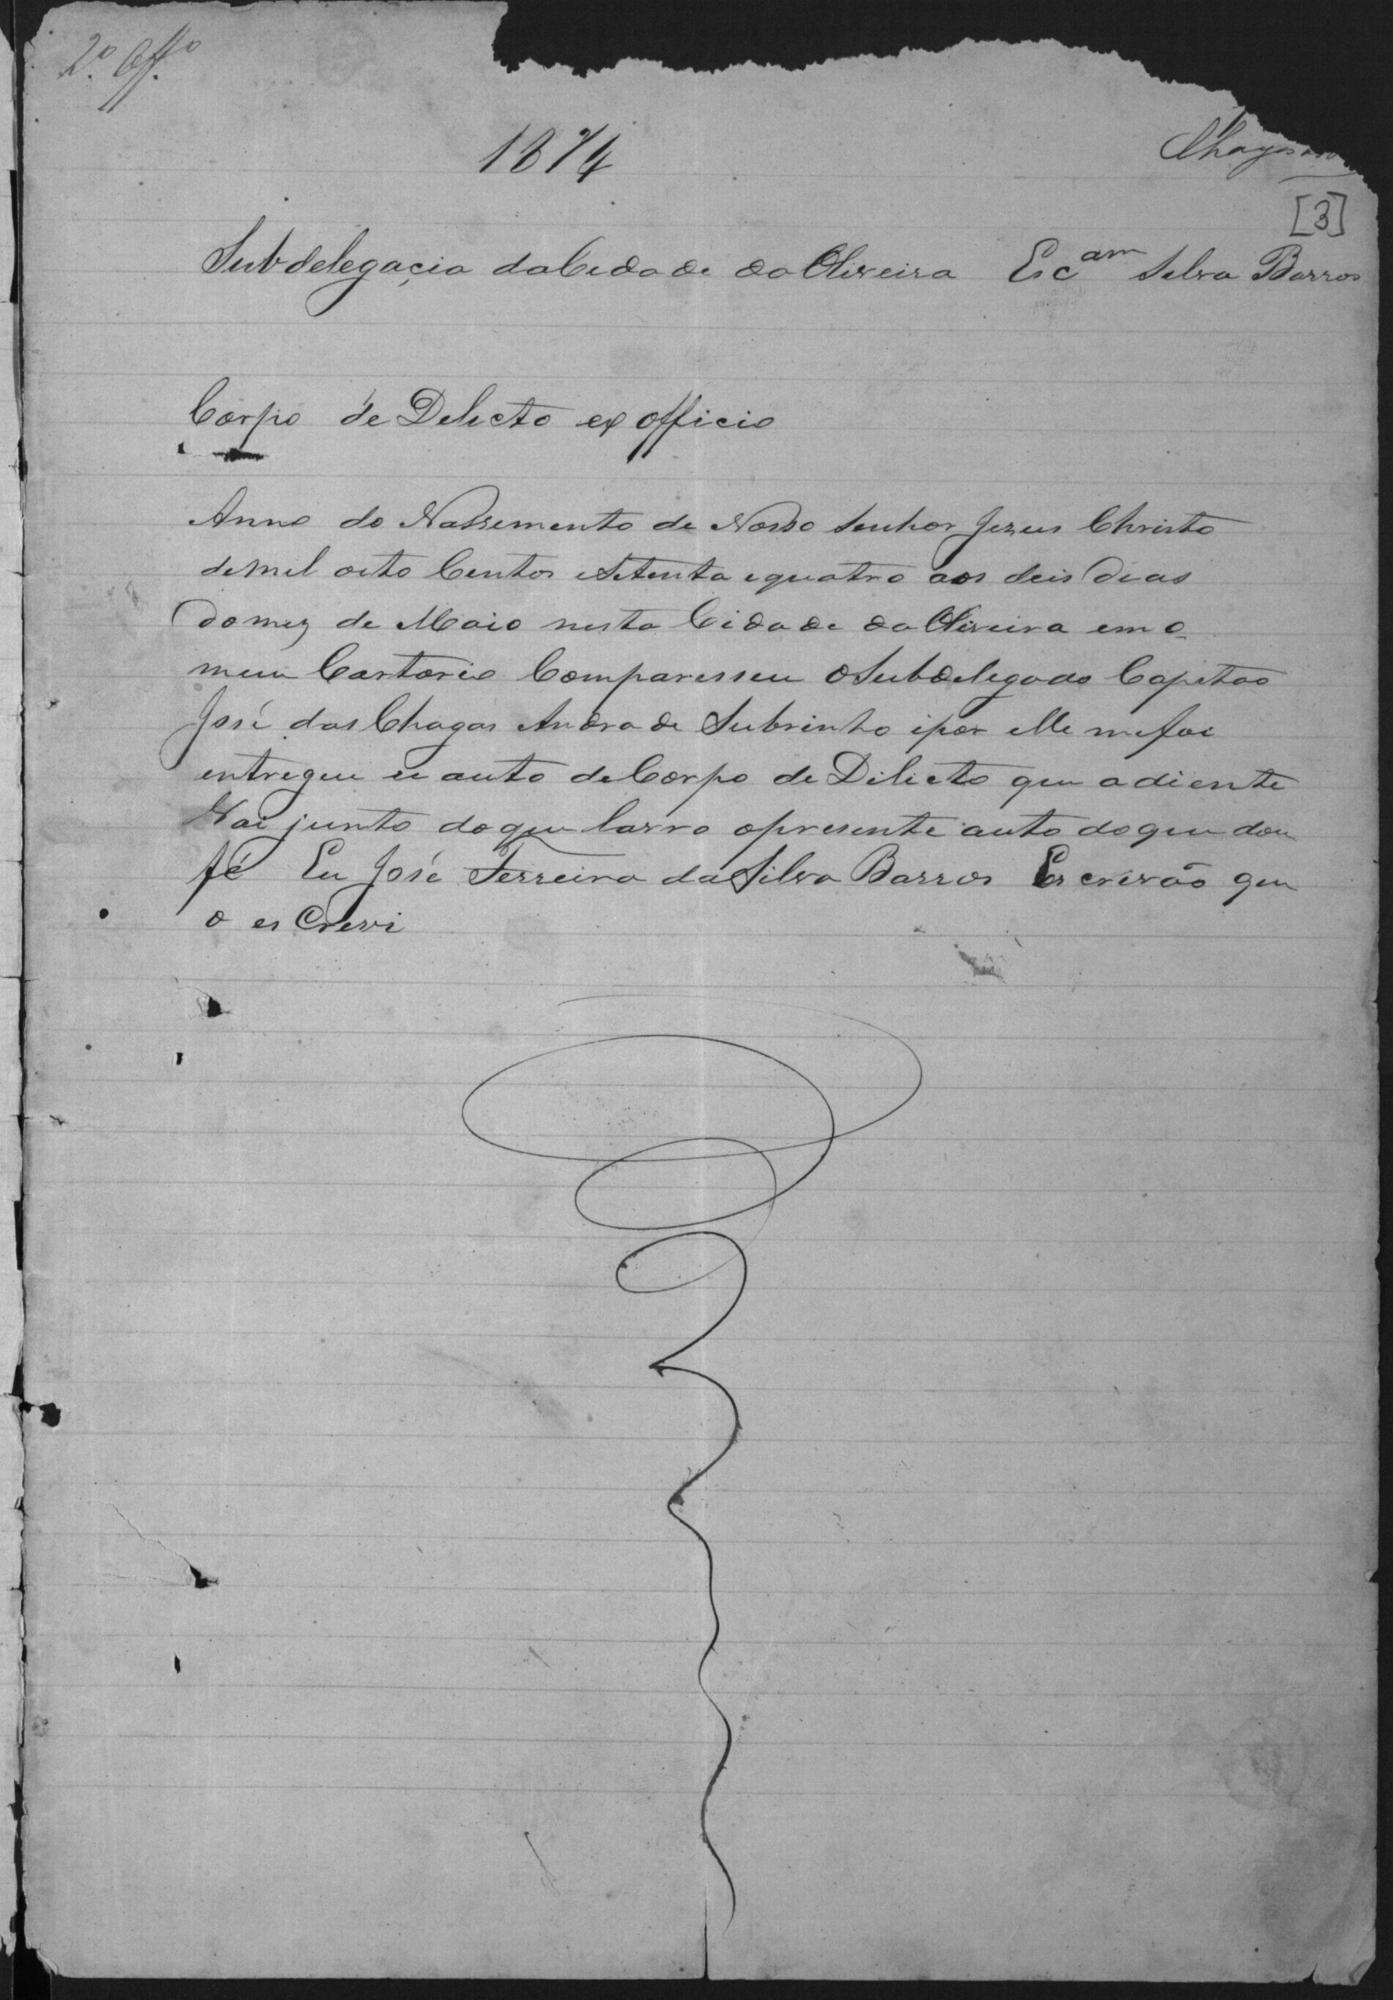 2º Offº
1874
Chagas
[3]
Subdelegacia da Cedade da Oliveira Escam Silva Barros
Corpo de Delicto ex officio
Anno do Nassemento de Nosso Senhor Jezus Christo
de mil oito Centos e Setenta e quatro aos deis dias
do mez de Maio nesta Cidade da Oliveira em o
meu Cartorio Comparesseu o Subdelegado Capitao
José das Chagas Andrade Subrinho i por elle me foi
entregue u auto de Corpo de Dilicto que adiente
Vai junto do que lavro o presente auto do que dou
fé Eu José Ferreira da Silva Barros Escrivão que
o es Crevi